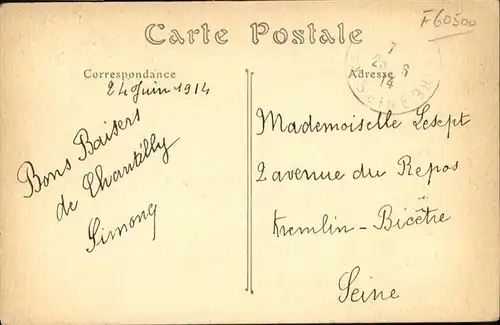 F60500
Carte Postale
Correspondance
Adresse
24 Juin 1914
Bons Baisers
de Chantilly
Simone
Mademoiselle Lesept
2 avenue du Repos
Kremlin-Bicêtre
Seine